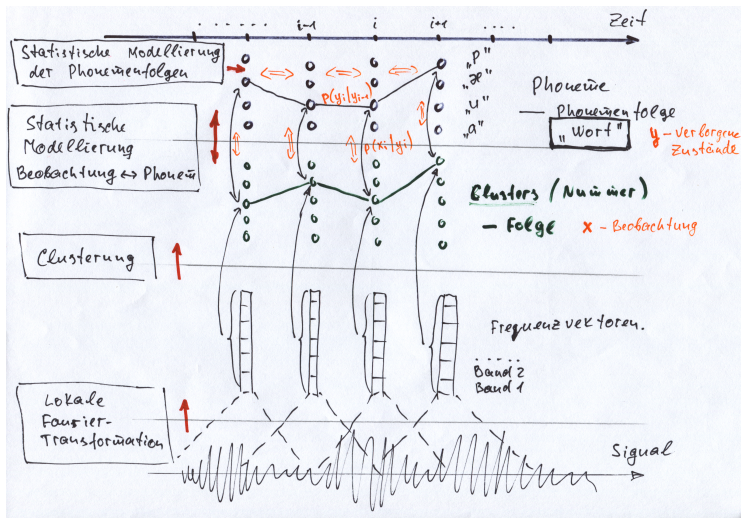 ....... i-1 i i+1 .... Zeit
Statistische Modellierung
der Phonemenfolgen
p(yi/yi-1)
"p"
"æ"
"u"
"a"
Phoneme
— Phonemenfolge
"Wort"
y - verborgene
Zustände
Statistische
Modellierung
Beobachtung ↔ Phonem
p(xi/yi)
Clusters (Nummer)
- Folge
x - Beobachtung
Clusterung
Frequenzvektoren.
.....
Band 2
Band 1
Lokale
Fourier-
Transformation
Signal